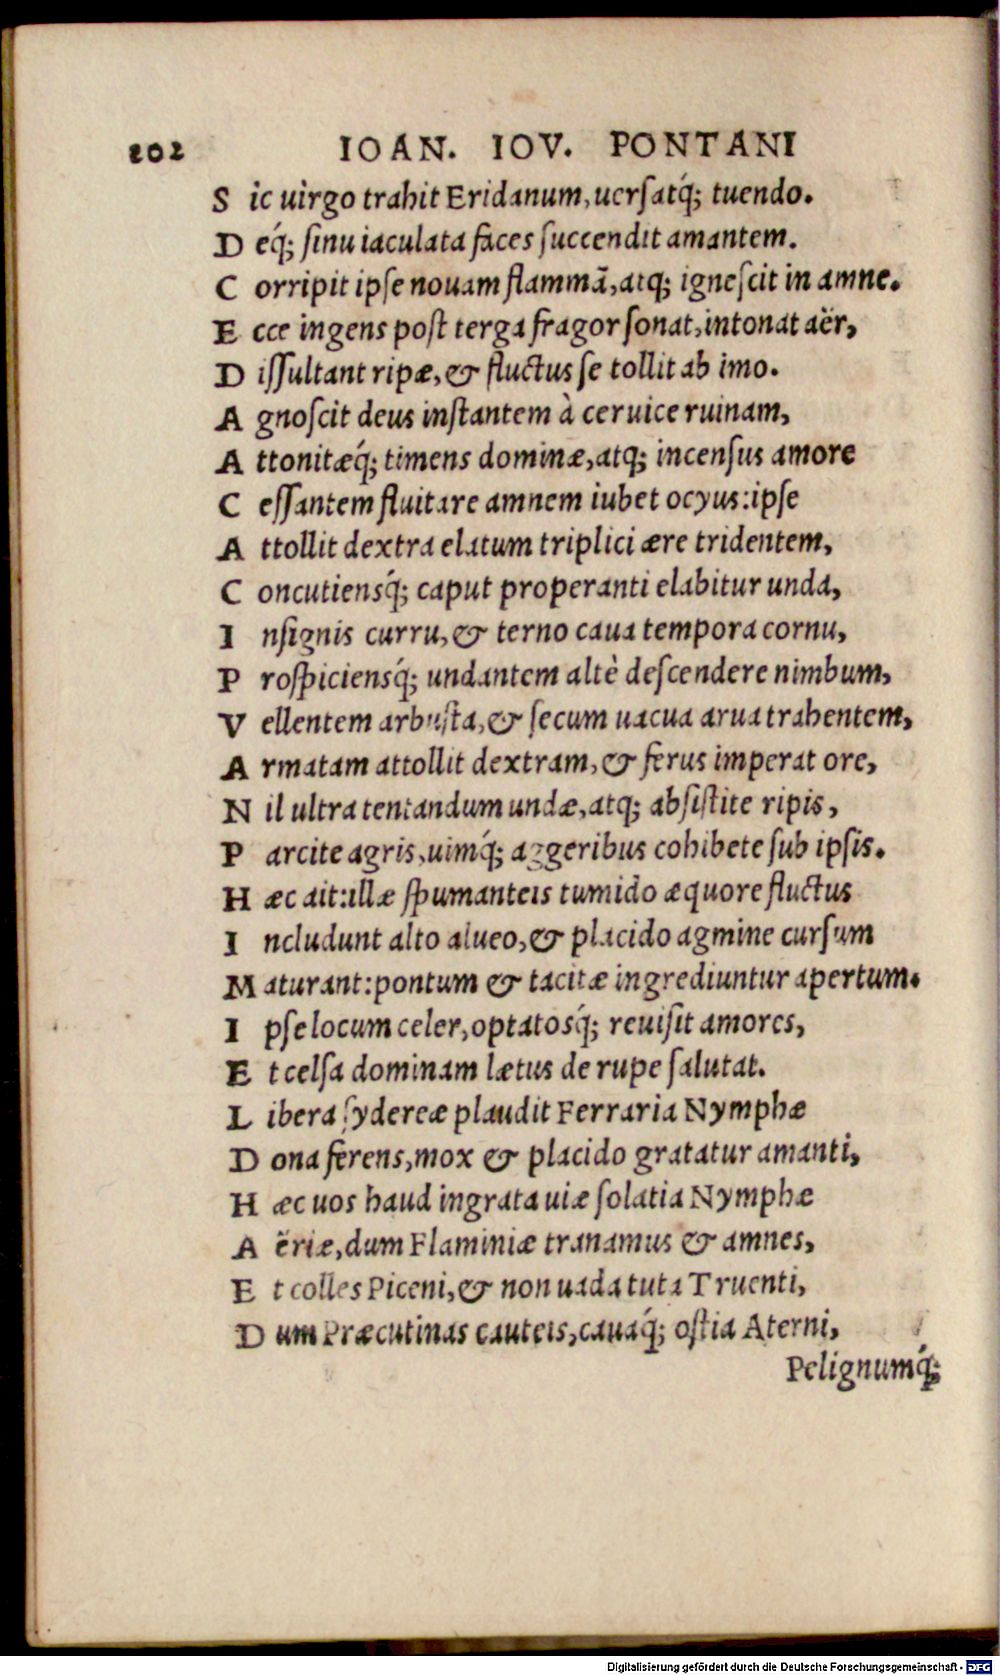 202 IOAN. IOV. PONTANI
S ic uirgo trahit Eridanum, uersatq́; tuendo.
D eq́; sinu iaculata faces succendit amantem.
C orripit ipse nouam flammã, atq; ignescit in amne.
E cce ingens post terga fragor sonat, intonat aër,
D issultant ripæ, & fluctus se tollit ab imo.
A gnoscit deus instantem à ceruice ruinam,
A ttonitæq́; timens dominæ, atq; incensus amore
C essantem fluitare amnem iubet ocyus: ipse
A ttollit dextra elatum triplici ære tridentem,
C oncutiensq́; caput properanti elabitur unda,
I nsignis curru, & terno caua tempora cornu,
P rospiciensq́; undantem altè descendere nimbum,
V ellentem arbusta, & secum uacua arua trahentem,
A rmatam attollit dextram, & ferus imperat ore,
N il ultra tentandum undæ, atq; absistite ripis,
P arcite agris, uimq́; aggeribus cohibete sub ipsis.
H æc ait: illæ spumanteis tumido æquore fluctus
I ncludunt alto alueo, & placido agmine cursum
M aturant: pontum & tacitæ ingrediuntur apertum.
I pse locum celer, optatosq́; reuisit amores,
E t celsa dominam lætus de rupe salutat.
L ibera sydereæ plaudit Ferraria Nymphæ
D ona ferens, mox & placido gratatur amanti,
H æc uos haud ingrata uiæ solatia Nymphæ
A ëriæ, dum Flaminiæ tranamus & amnes,
E t colles Piceni, & non uada tuta Truenti,
D um Præcutinas cauteis, cauaq́; ostia Aterni,
Pelignumq́;
Digitalisierung gefördert durch die Deutsche Forschungsgemeinschaft - DFG